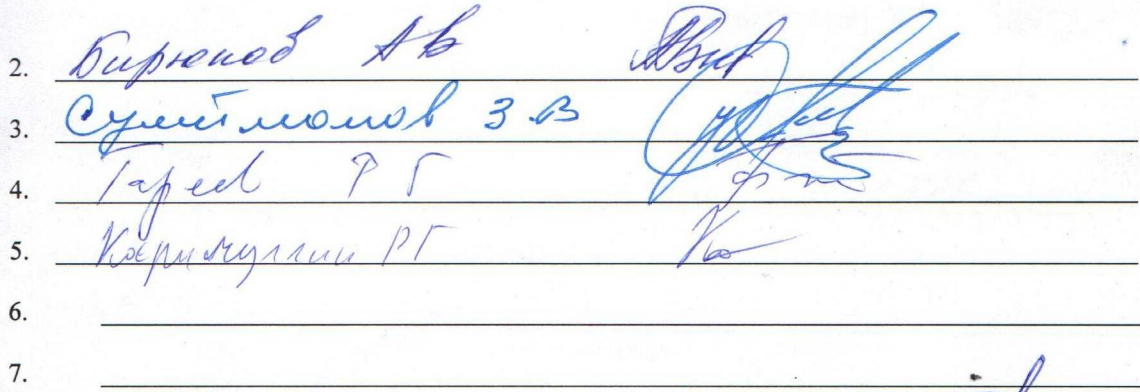 2. Бирюков АВ
3. Сулейманов З.В
4. Гареев Р Г
5. Каримуллин РГ
6.
7.